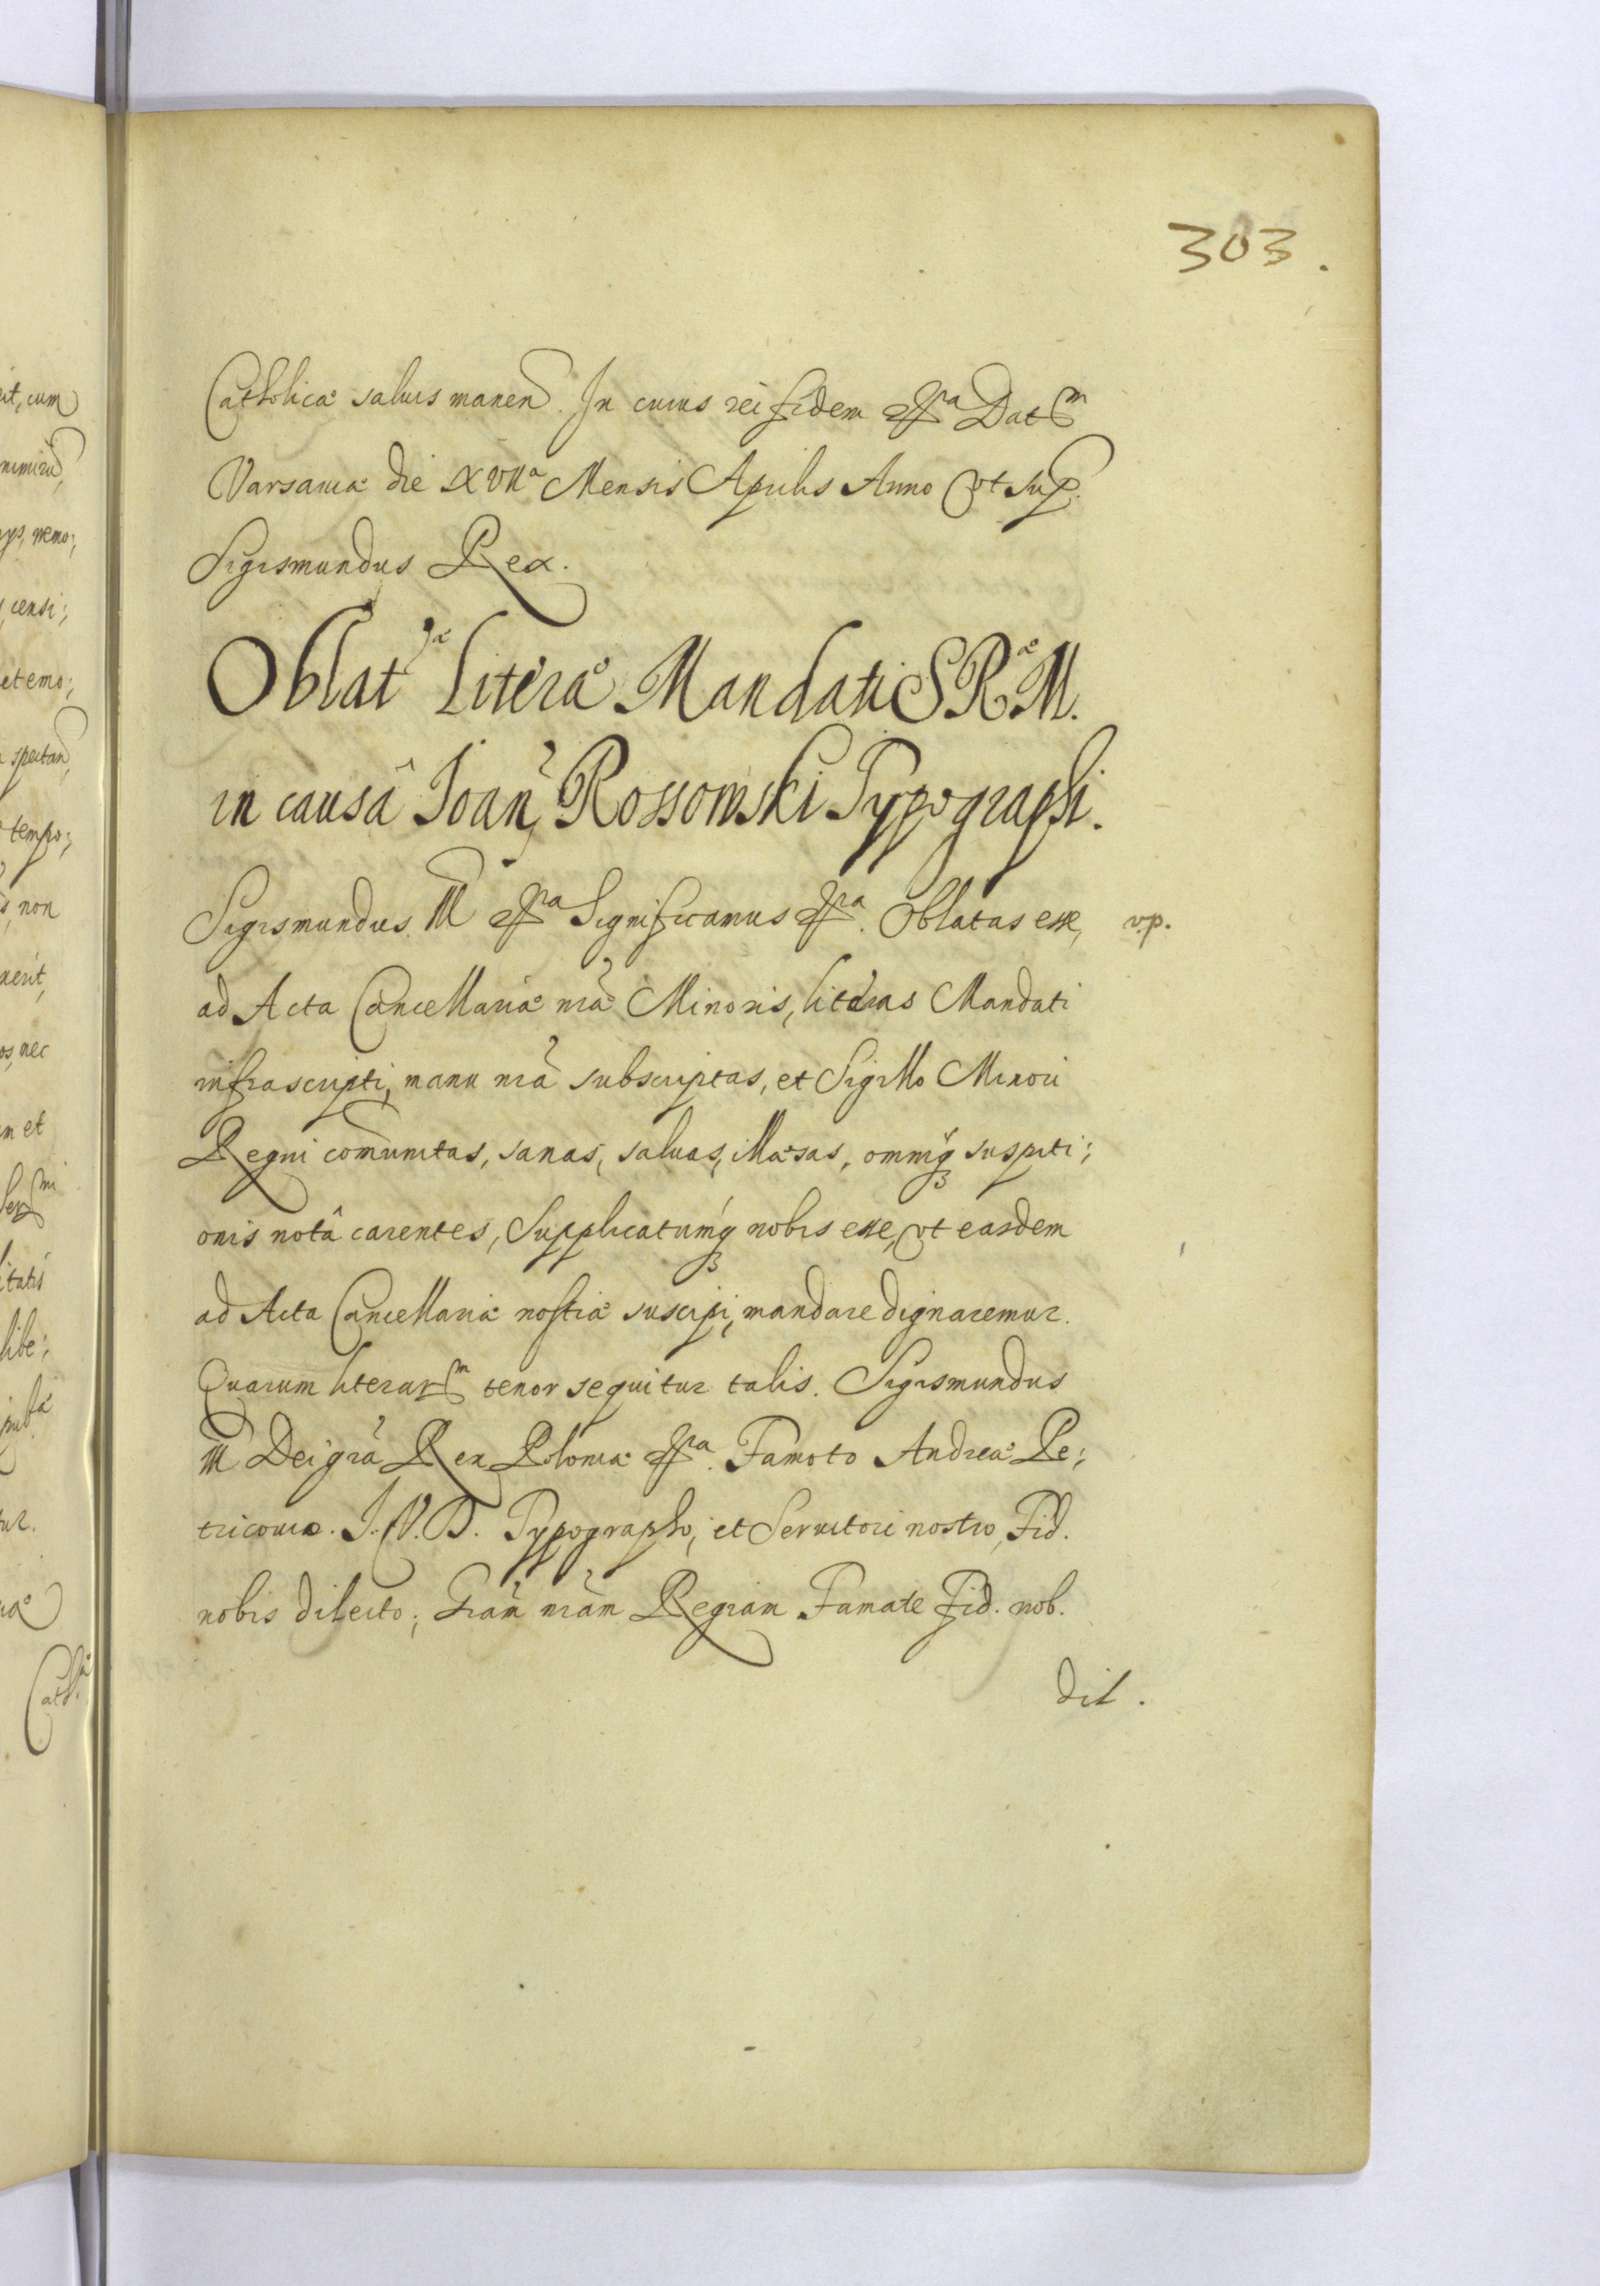 303.
Catholicae saluis manen. In cuius rei fidem etcra Datm
Varsauiae die XVIIa Mensis Aprilis Anno vt sup.
Sigismundus Rex.
Oblatae Literae Mandati S Rae M.
in causâ Joan Rossowski Typographi.
Sigismundus III etcra Significamus etcra. Oblatas esse, vp.
ad Acta Cancellariae nrae Minoris, literas Mandati
infrascripti, manu nra subscriptas, et Sigillo Minori
Regni comunitas, sanas, saluas, illaesas, omniq suspiti;
onis notâ carentes, Supplicatumq nobis esse, vt easdem
ad Acta Cancellariae nostrae suscipi, mandare dignaremur.
Quarum literarm tenor sequitur talis. Sigismundus
III Dei gra Rex Poloniae etcra. Famoto Andreae Pe;
tricouio. J. V. D. Typographo, et Seruitori nostro, Fid.
nobis dilecto; Gram nram Regiam Famate Fid. nob.
dil.
it, cum
nimiru,
censi;
et emo;
spectan
tempo;
non
nec
et
libe;
Cath.